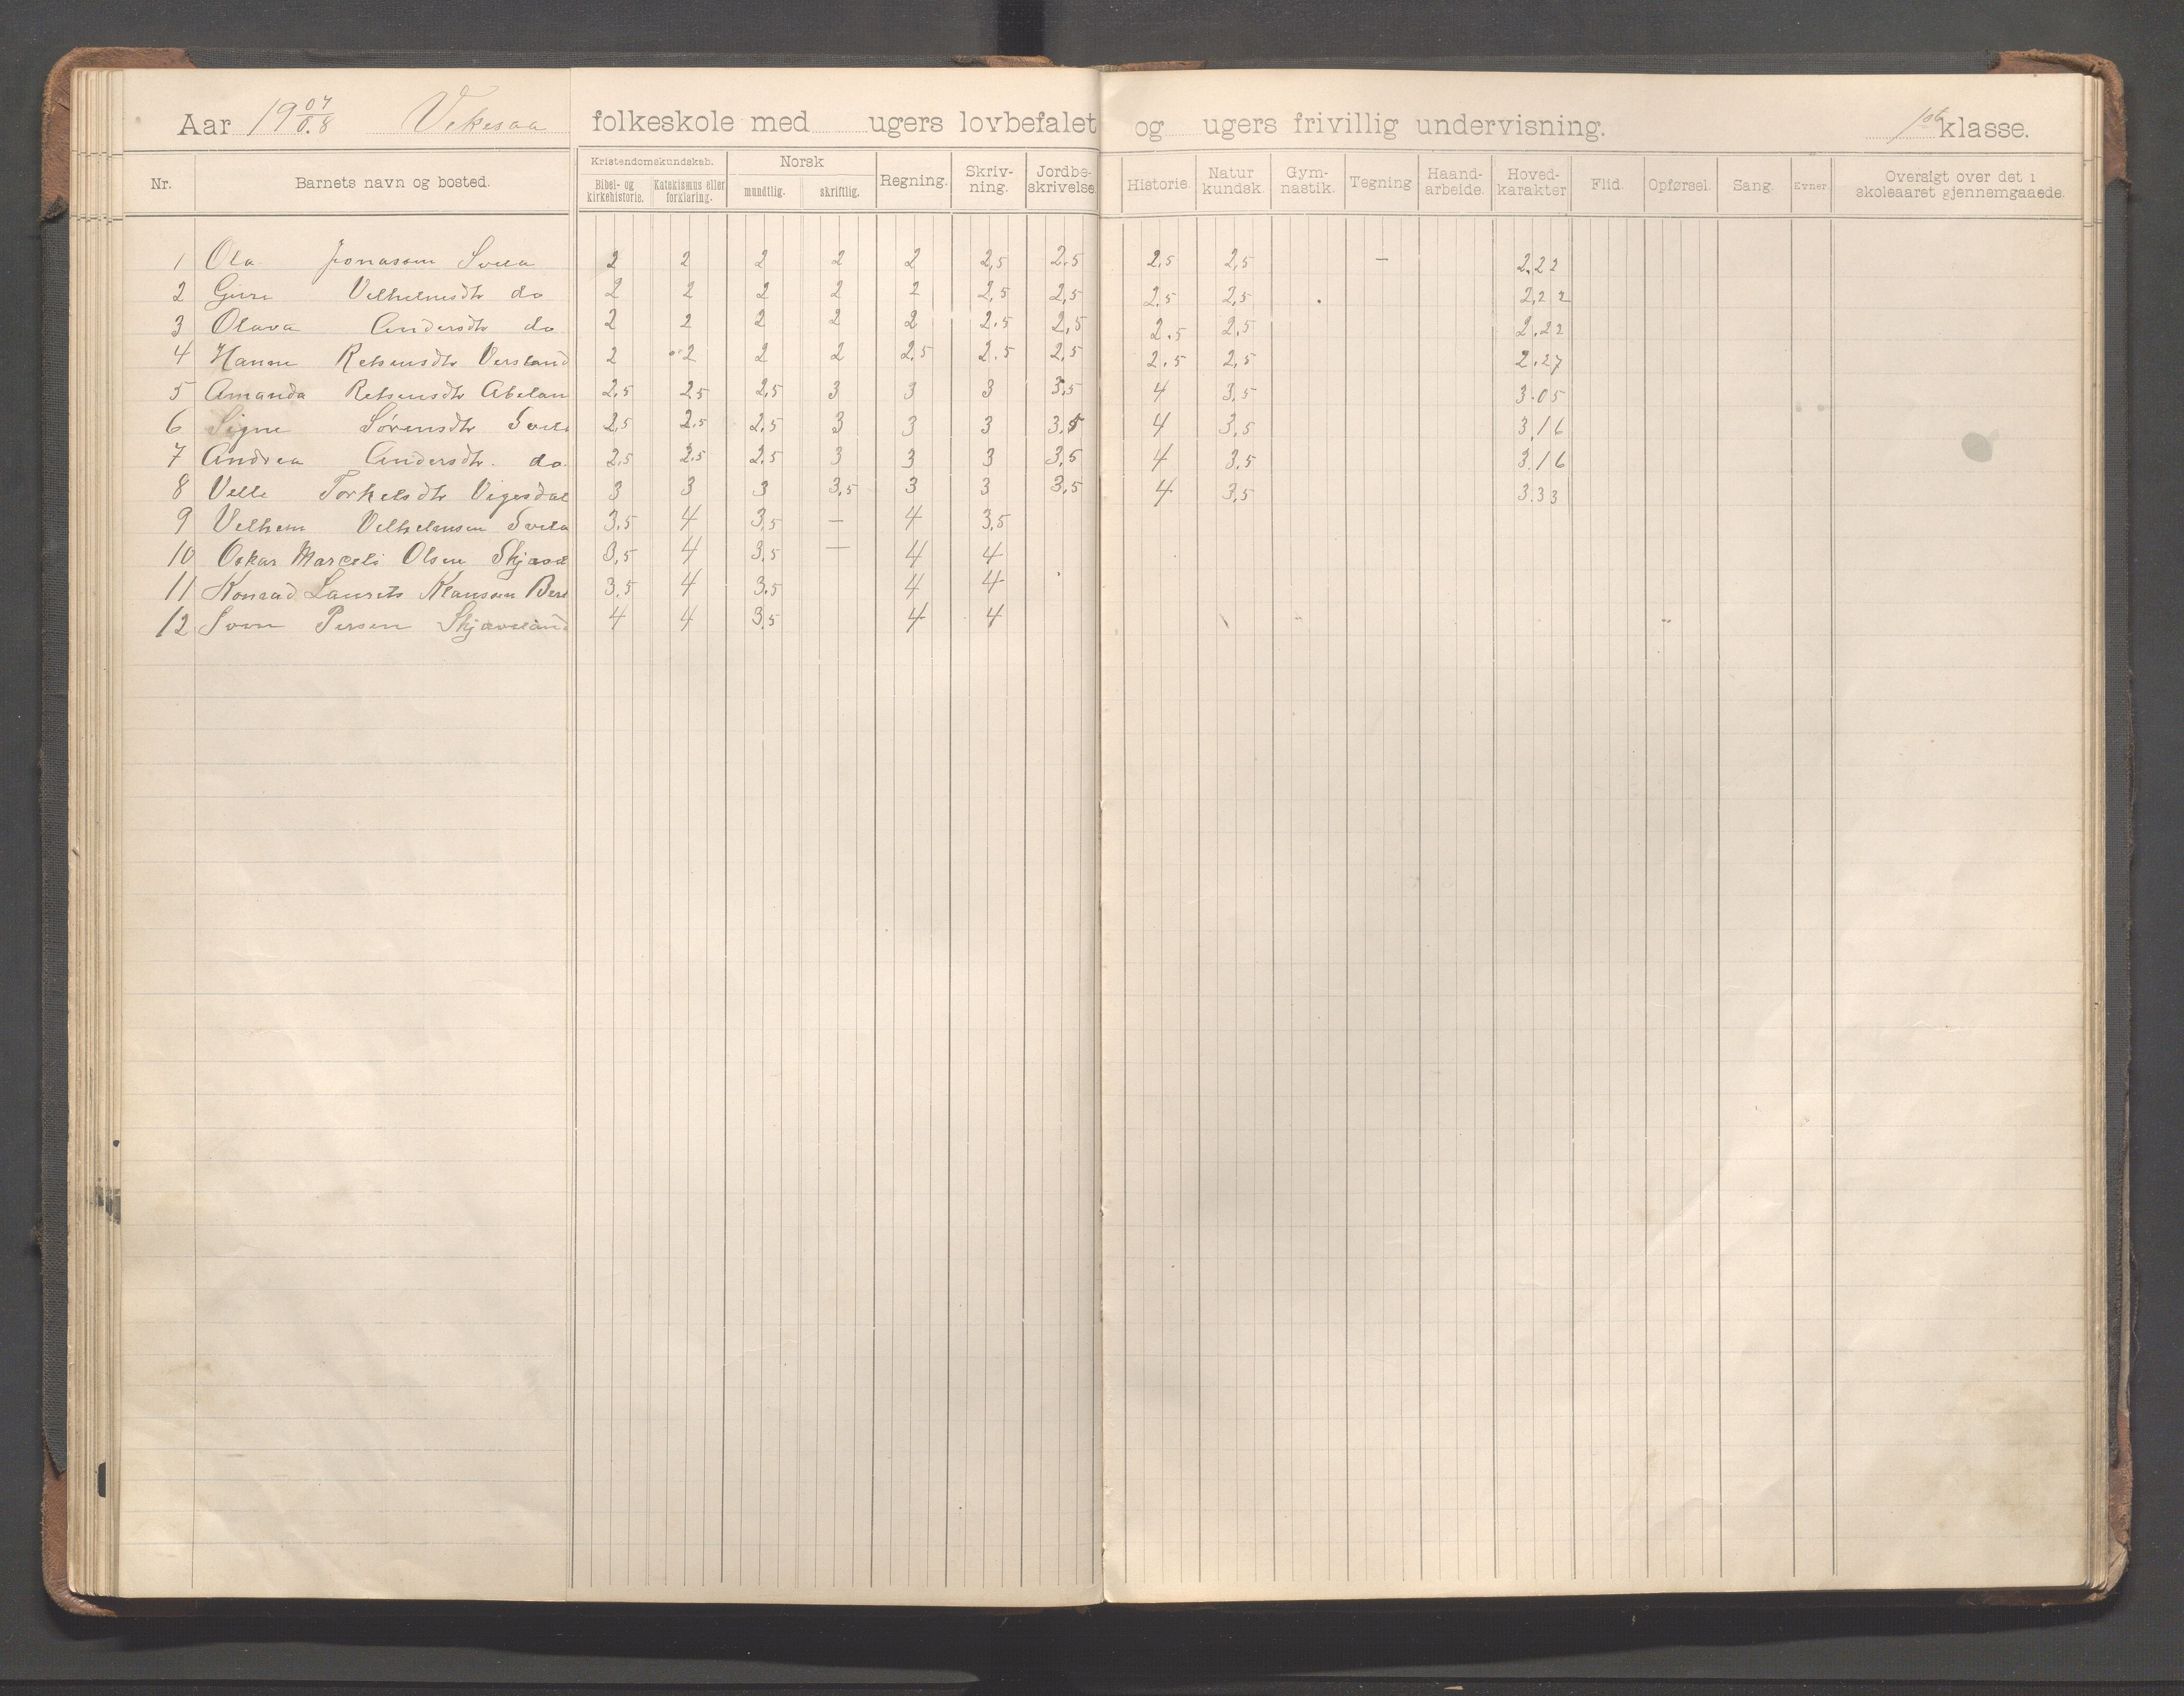 Aar 19 07/0.8 Vekesaa folkeskole med ugers lovbefalet og ugers frivillig undervisning. 1ste klasse.
Nr. Barnets navn og bosted. Kristendomskundskab. Bibel- og kirkehistorie. Katekismus eller forklaring. Norsk mundtlig. skriftlig. Regning. Skriv-ning. Jordbe-skrivelse Historie. Natur kundsk. Gym-nastik. Tegning Haand-arbeide. Hoved-karakter Flid. Opførsel. Sang. Evner. Oversigt over det i skoleaaret gjennemgaaede.
1 Ola Jonassen Svela 2 2 2 2 2 2,5 2.5 2,5 2,5 — 2.22
2 Gure Velhelmsdtr do 2 2 2 2 2 2,5 2,5 2,5 2,5 2,22
3 Olava Andersdtr do 2 2 2 2 2 2.5 2,5 2.5 2,5 2.22
4 Hanne Retsensdtr Versland 2 2 2 2 2,5 2.5 2,5 2.5 2,5 2.27
5 Amanda Retsensdtr Abelan 2,5 2,5 2,5 3 3 3 3,5 4 3,5 3.05
6 Signe Sørensdtr Svela 2,5 2,5 2,5 3 3 3 3,5 4 3,5 3,16
7 Andrea Andersdtr. do. 2,5 2,5 2,5 3 3 3 3,5 4 3,5 3.16
8 Velle Torkelsdtr Vigesdal 3 3 3 3,5 3 3 3,5 4 3,5 3.33
9 Velhem Velhelmsen Svela 3,5 4 3,5 — 4 3,5
10 Oskar Marceli Olsen 3,5 4 3,5 — 4 4
11 Konrad Laurets Klausen 3,5 4 3.5 4 4
12 Sven Persen Skjæveland 4 4 3,5 4 4